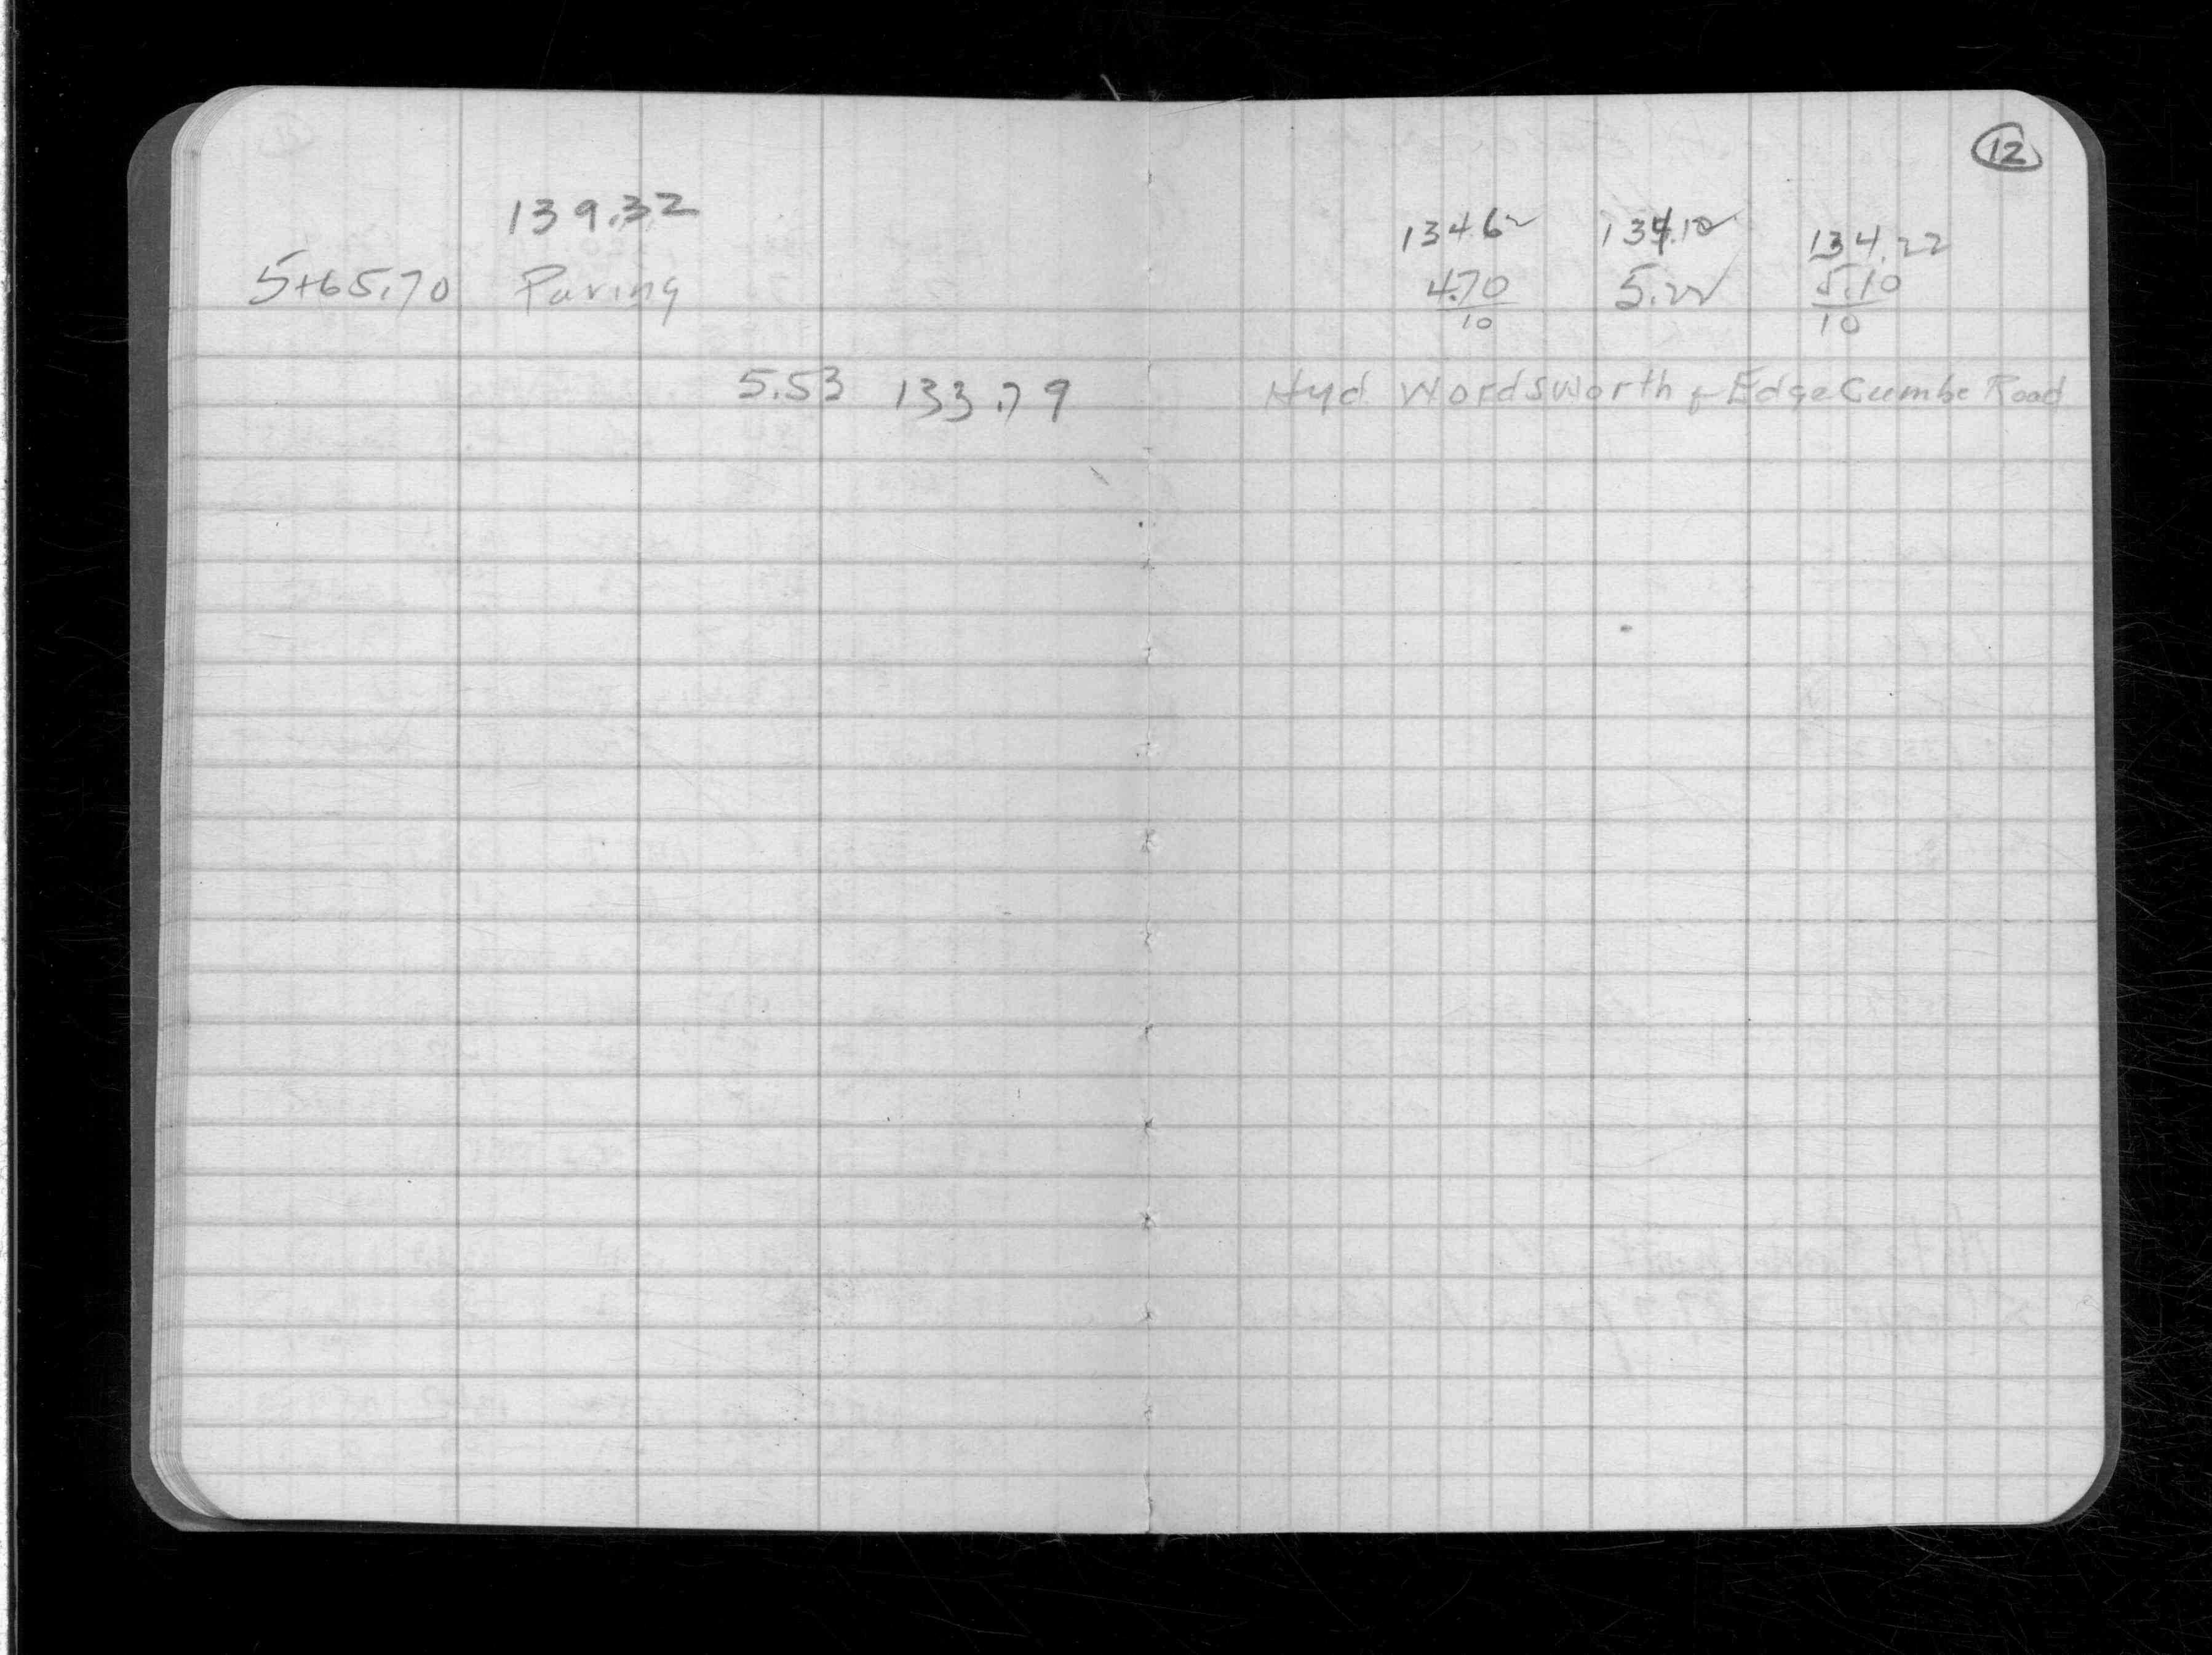 12
139.32 134.62 134.10 134.22
5+65.70 Paving 4.70 5.22 5.10
10 10
5.53 133.79 Hyd Wordsworth & EdgeCumbe Road